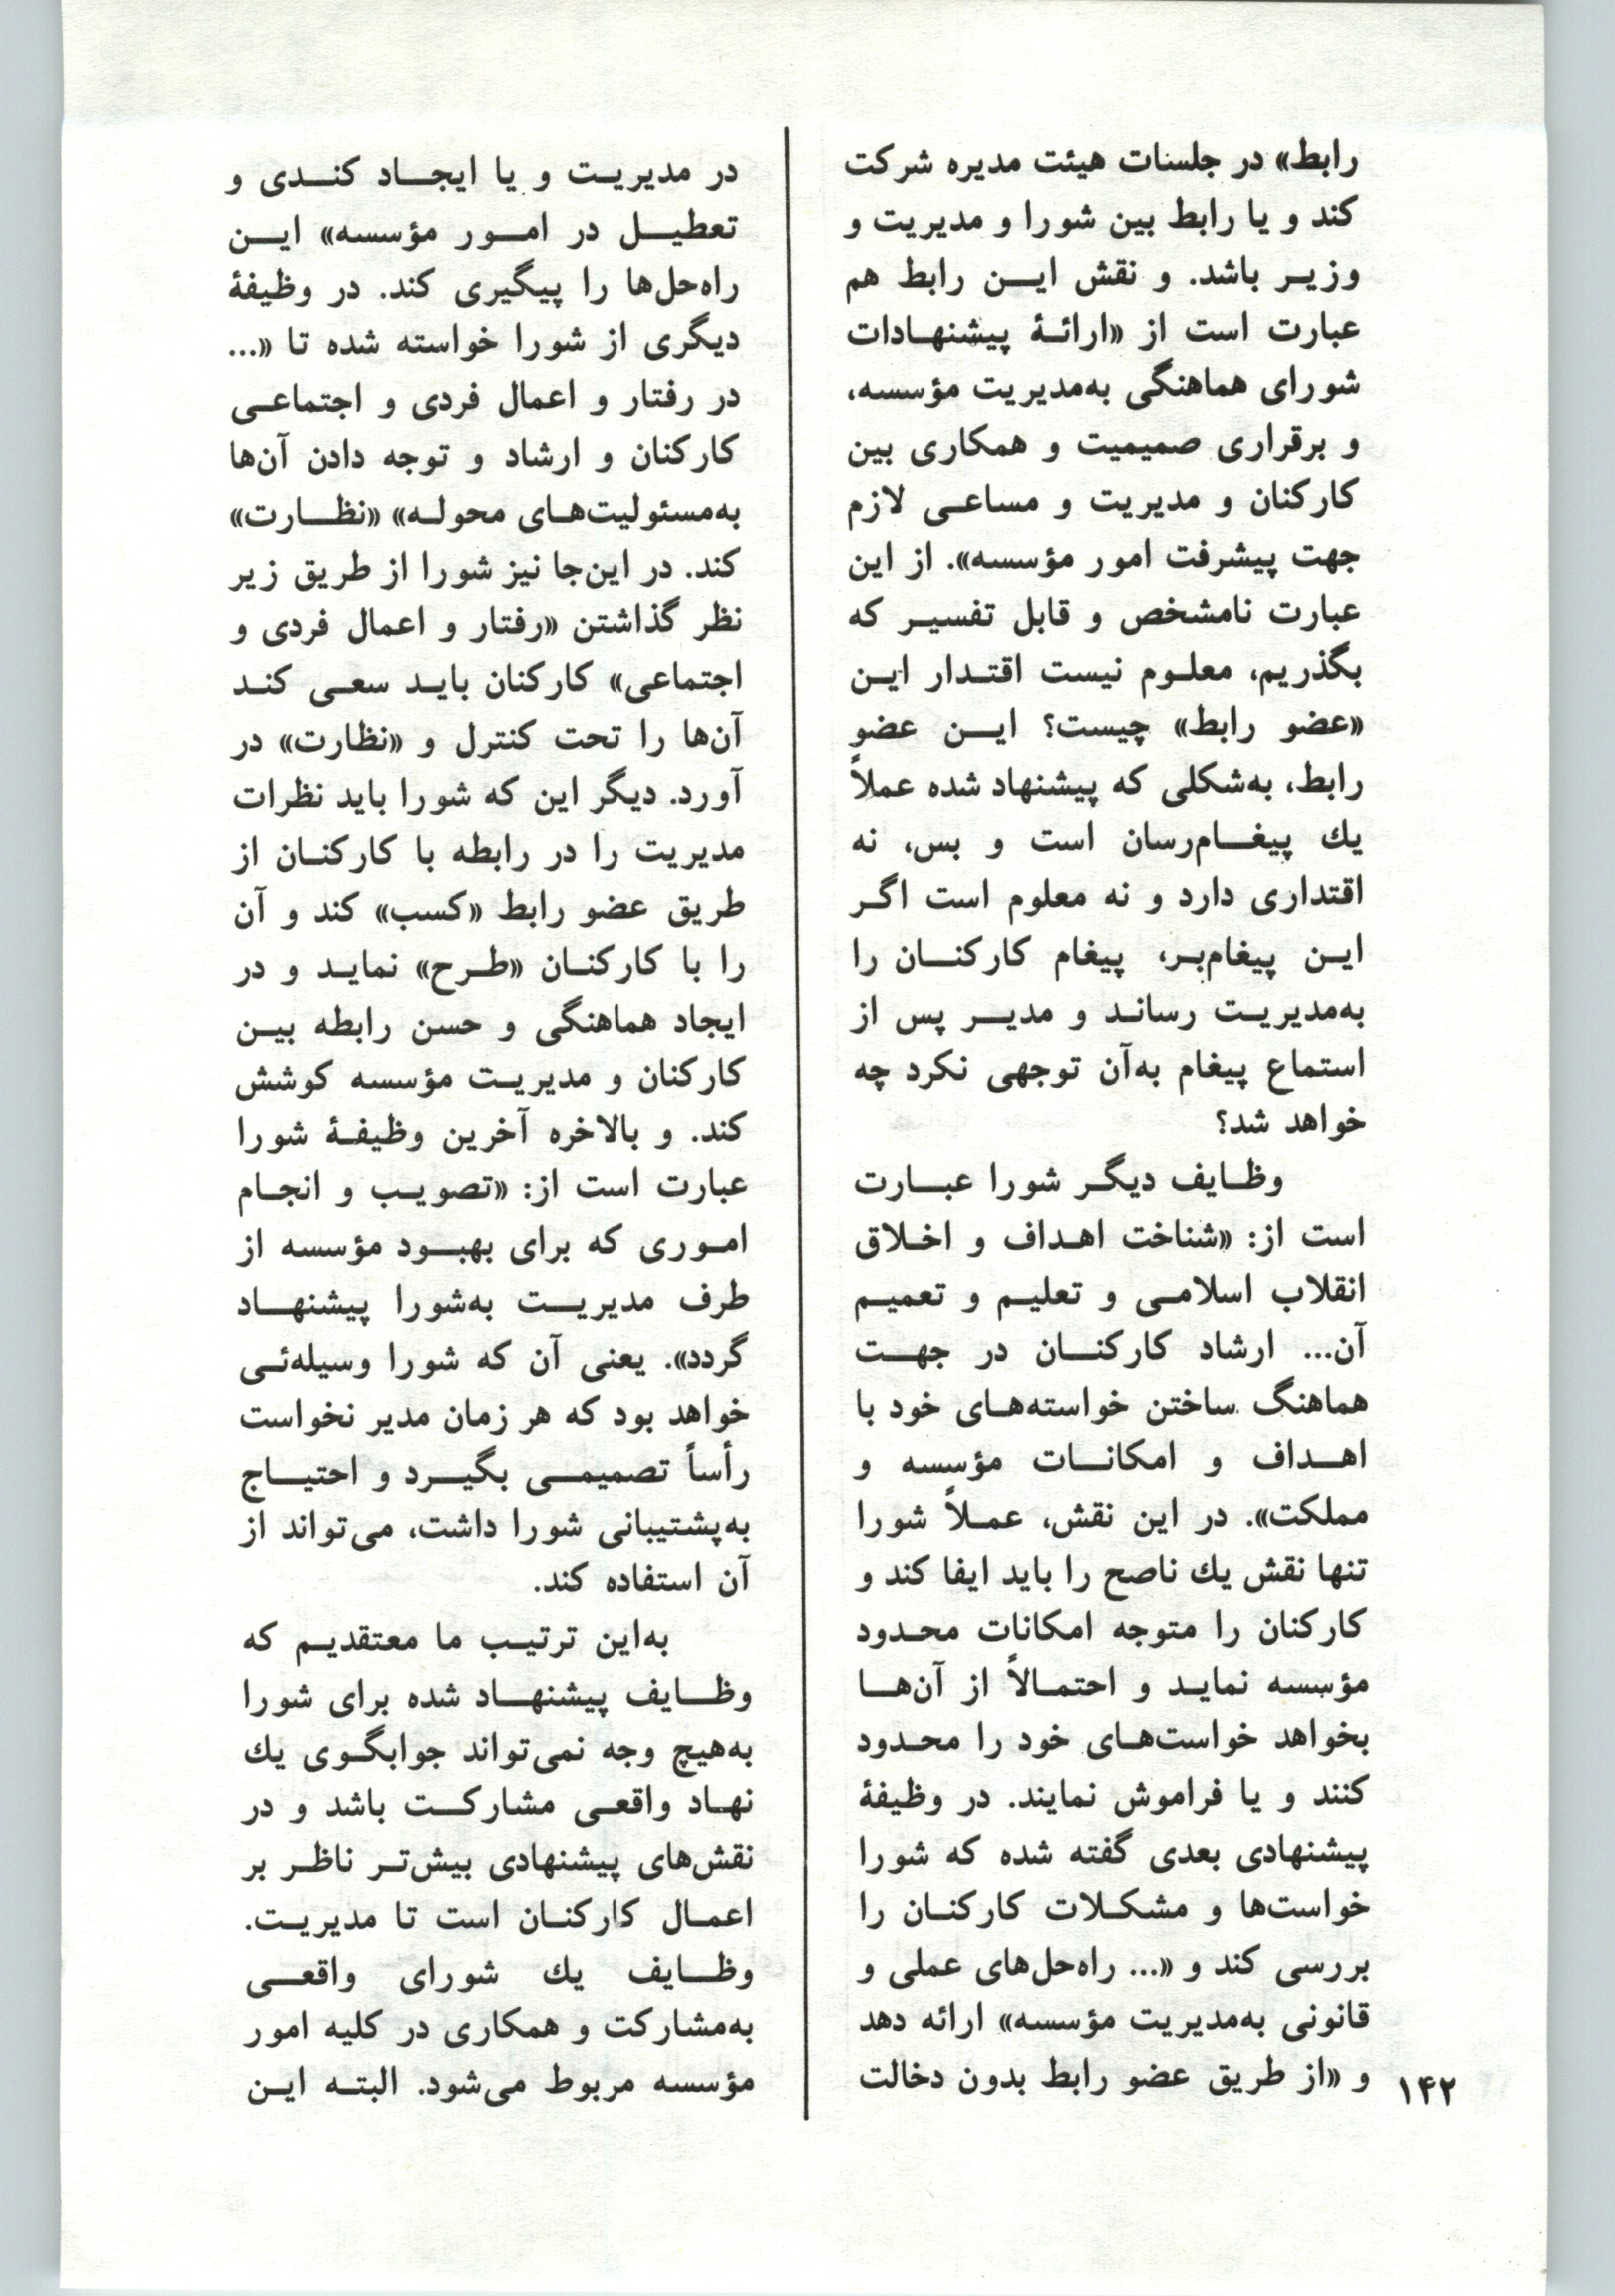 رابط» در جلسات هیئت مدیره شرکت
کند و یا رابط بین شورا و مدیریت و
وزیر باشد. و نقش این رابط هم
عبارت است از «ارائهٔ پیشنهادات
شورای هماهنگی به‌مدیریت مؤسسه،
و برقراری صمیمیت و همکاری بین
کارکنان و مدیریت و مساعی لازم
جهت پیشرفت امور مؤسسه». از این
عبارت نامشخص و قابل تفسیر که
بگذریم، معلوم نیست اقتدار این
«عضو رابط» چیست؟ این عضو
رابط، به‌شکلی که پیشنهاد شده عملاً
یك پیغام‌رسان است و بس، نه
اقتداری دارد و نه معلوم است اگر
این پیغام‌بر، پیغام کارکنان را
به‌مدیریت رساند و مدیر پس از
استماع پیغام به‌آن توجهی نکرد چه
خواهد شد؟
وظایف دیگر شورا عبارت
است از: «شناخت اهداف و اخلاق
انقلاب اسلامی و تعلیم و تعمیم
آن... ارشاد کارکنان در جهت
هماهنگ ساختن خواسته‌های خود با
اهداف و امکانات مؤسسه و
مملکت». در این نقش، عملاً شورا
تنها نقش یك ناصح را باید ایفا کند و
کارکنان را متوجه امکانات محدود
مؤسسه نماید و احتمالاً از آن‌ها
بخواهد خواست‌های خود را محدود
کنند و یا فراموش نمایند. در وظیفهٔ
پیشنهادی بعدی گفته شده که شورا
خواست‌ها و مشکلات کارکنان را
بررسی کند و «... راه‌حل‌های عملی و
قانونی به‌مدیریت مؤسسه» ارائه دهد
و «از طریق عضو رابط بدون دخالت
۱۴۲
در مدیریت و یا ایجاد کندی و
تعطیل در امور مؤسسه» این
راه‌حل‌ها را پیگیری کند. در وظیفهٔ
دیگری از شورا خواسته شده تا «...
در رفتار و اعمال فردی و اجتماعی
کارکنان و ارشاد و توجه دادن آن‌ها
به‌مسئولیت‌های محوله» «نظارت»
کند. در این‌جا نیز شورا از طریق زیر
نظر گذاشتن «رفتار و اعمال فردی و
اجتماعی» کارکنان باید سعی کند
آن‌ها را تحت کنترل و «نظارت» در
آورد. دیگر این که شورا باید نظرات
مدیریت را در رابطه با کارکنان از
طریق عضو رابط «کسب» کند و آن
را با کارکنان «طرح» نماید و در
ایجاد هماهنگی و حسن رابطه بین
کارکنان و مدیریت مؤسسه کوشش
کند. و بالاخره آخرین وظیفهٔ شورا
عبارت است از: «تصویب و انجام
اموری که برای بهبود مؤسسه از
طرف مدیریت به‌شورا پیشنهاد
گردد». یعنی آن که شورا وسیله‌ئی
خواهد بود که هر زمان مدیر نخواست
رأساً تصمیمی بگیرد و احتیاج
به‌پشتیبانی شورا داشت، می‌تواند از
آن استفاده کند.
به‌این ترتیب ما معتقدیم که
وظایف پیشنهاد شده برای شورا
به‌هیچ وجه نمی‌تواند جوابگوی یك
نهاد واقعی مشارکت باشد و در
نقش‌های پیشنهادی بیش‌تر ناظر بر
اعمال کارکنان است تا مدیریت.
وظایف یك شورای واقعی
به‌مشارکت و همکاری در کلیه امور
مؤسسه مربوط می‌شود. البته این